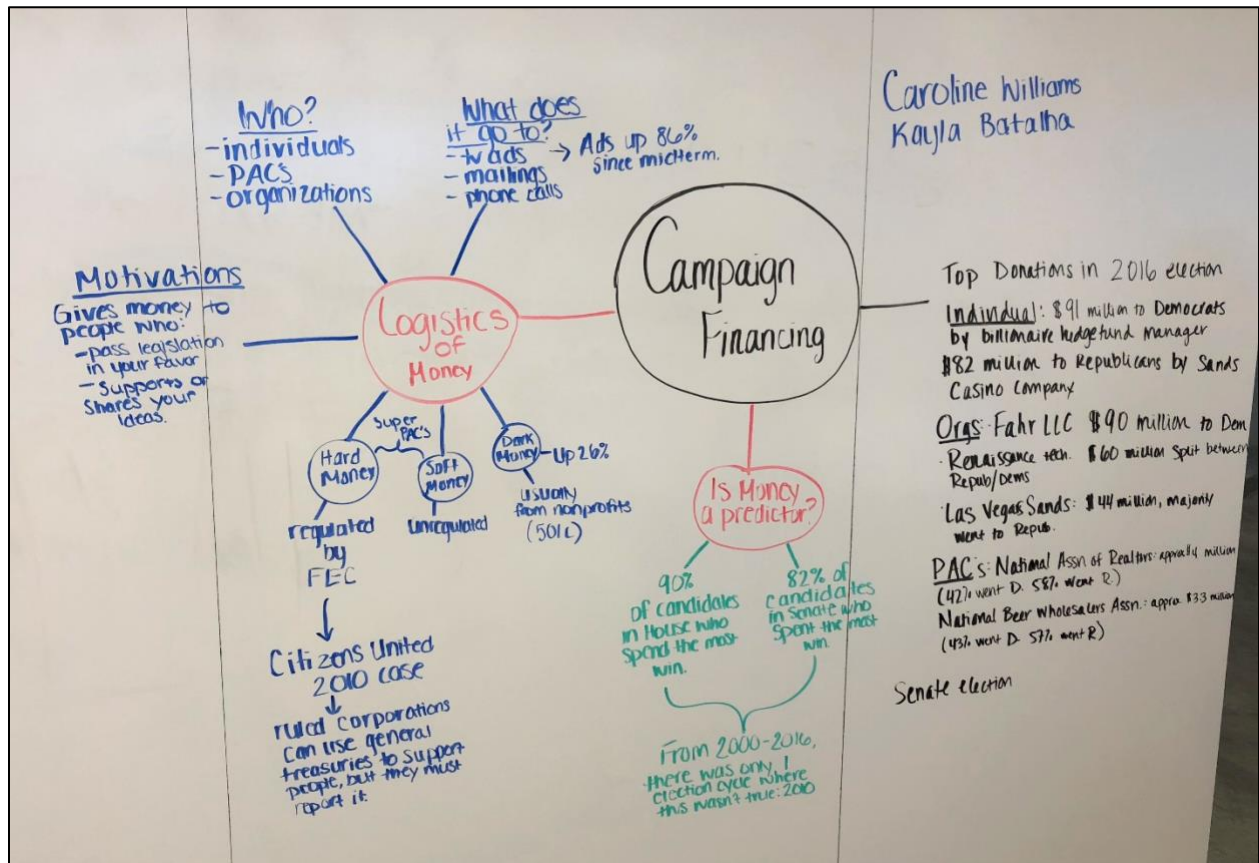 Who?
- individuals
- PAC's
- organizations
What does
it go to?
- tv ads → Ads up 86%
since midterm.
- mailings
- phone calls
Caroline Williams
Kayla Batalha
Motivations
Gives money to
people who:
- pass legislation
in your favor
- Supports or
Shares your
Ideas.
Logistics
of
Money
Campaign
Financing
Super
PAC's
Hard
Money
Soft
Money
Dark
Money
- Up 26%
regulated
by
FEC
unregulated
usually
from nonprofits
(501c)
Citizens United
2010 case
ruled corporations
can use general
treasuries to support
people, but they must
report it.
Is Money
a predictor?
90%
of candidates
in House who
spend the most
win.
82% of
candidates
in Senate who
spent the most
win
From 2000-2016,
there was only 1
election cycle where
this wasn't true: 2010
Top Donations in 2016 election
Individual: $91 million to Democrats
by billionaire hedgefund manager
$82 million to Republicans by Sands
Casino Company
Orgs: Fahr LLC $90 million to Dem
· Renaissance tech. $60 million Split between
Repub/Dems
· Las Vegas Sands: $44 million, majority
went to Repub.
PAC's: National Assn of Realtors: million
(42% went D. 58% went R.)
National Beer Wholesalers Assn.: approx $3.3 million
(43% went D. 57% went R)
Senate election